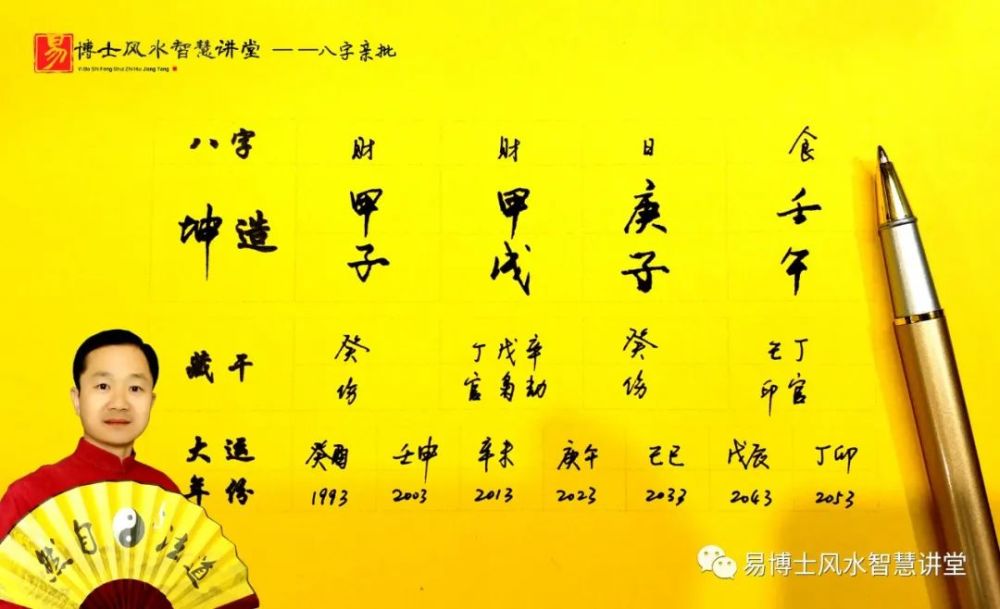 易 博士风水智慧讲堂 ——八字亲批
Yi Bo Shi Feng Shui Zhi Hui Jiang Tang
八字 财 财 日 食
坤造 甲 甲 庚 壬
子 戌 子 午
藏干 癸 丁戊辛 癸 己丁
伤 官枭劫 伤 印官
大运 癸酉 壬申 辛未 庚午 己巳 戊辰 丁卯
年份 1993 2003 2013 2023 2033 2043 2053
然自法道
易博士风水智慧讲堂